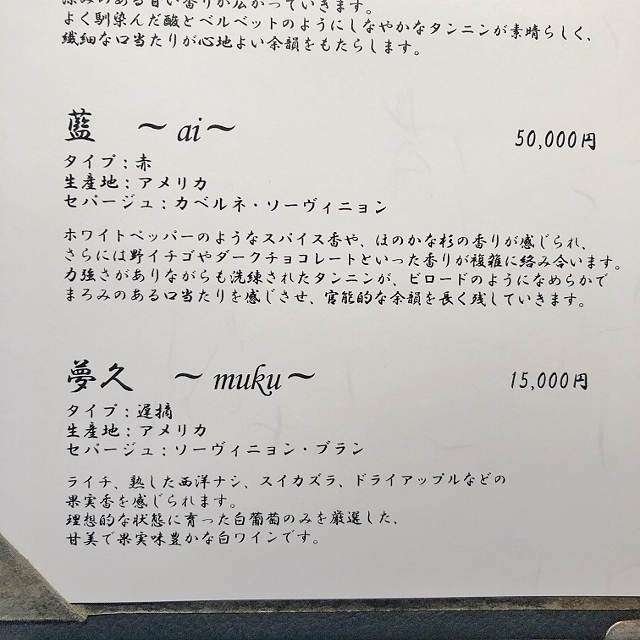 深みのある甘い香りが広がっていきます。
よく馴染んだ酸とベルベットのようにしなやかなタンニンが素晴らしく、
繊細な口当たりが心地よい余韻をもたらします。
藍 ～ai～ 50,000円
タイプ：赤
生産地：アメリカ
セパージュ：カベルネ・ソーヴィニョン
ホワイトペッパーのようなスパイス香や、ほのかな杉の香りが感じられ、
さらには野イチゴやダークチョコレートといった香りが複雑に絡み合います。
力強さがありながらも洗練されたタンニンが、ビロードのようになめらかで
まろみのある口当たりを感じさせ、官能的な余韻を長く残していきます。
夢久 ～muku～ 15,000円
タイプ：遅摘
生産地：アメリカ
セパージュ：ソーヴィニョン・ブラン
ライチ、熟した西洋ナシ、スイカズラ、ドライアップルなどの
果実香を感じられます。
理想的な状態に育った白葡萄のみを厳選した、
甘美で果実味豊かな白ワインです。